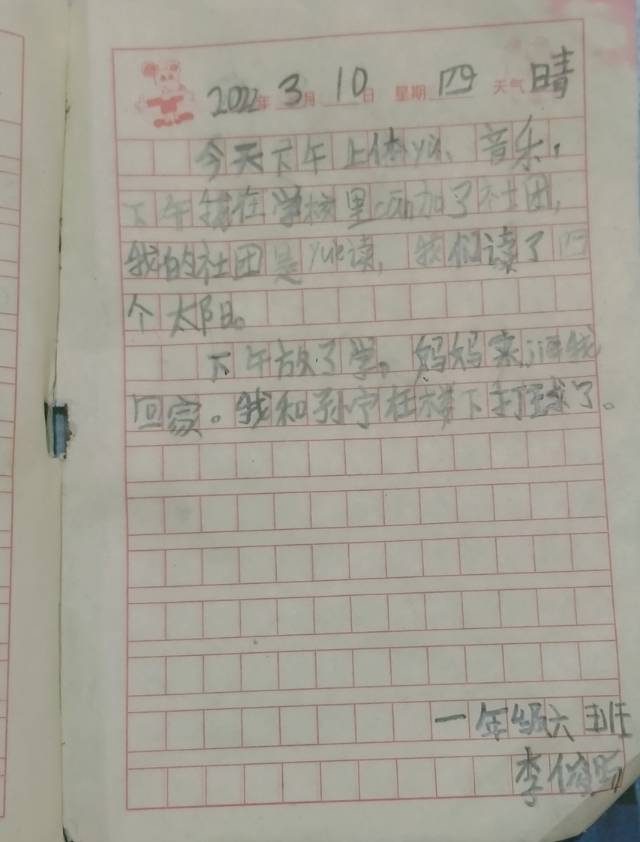 2022年3月10日 星期四 天气晴
今天下午上体yù、音乐,
下午我在学校里cān加了社团,
我的社团是yuè读,我们读了四
个太阳。
下午放了学。妈妈来jiē我
回家。我和孙宁在楼下打球了。
一年级六班
李俊